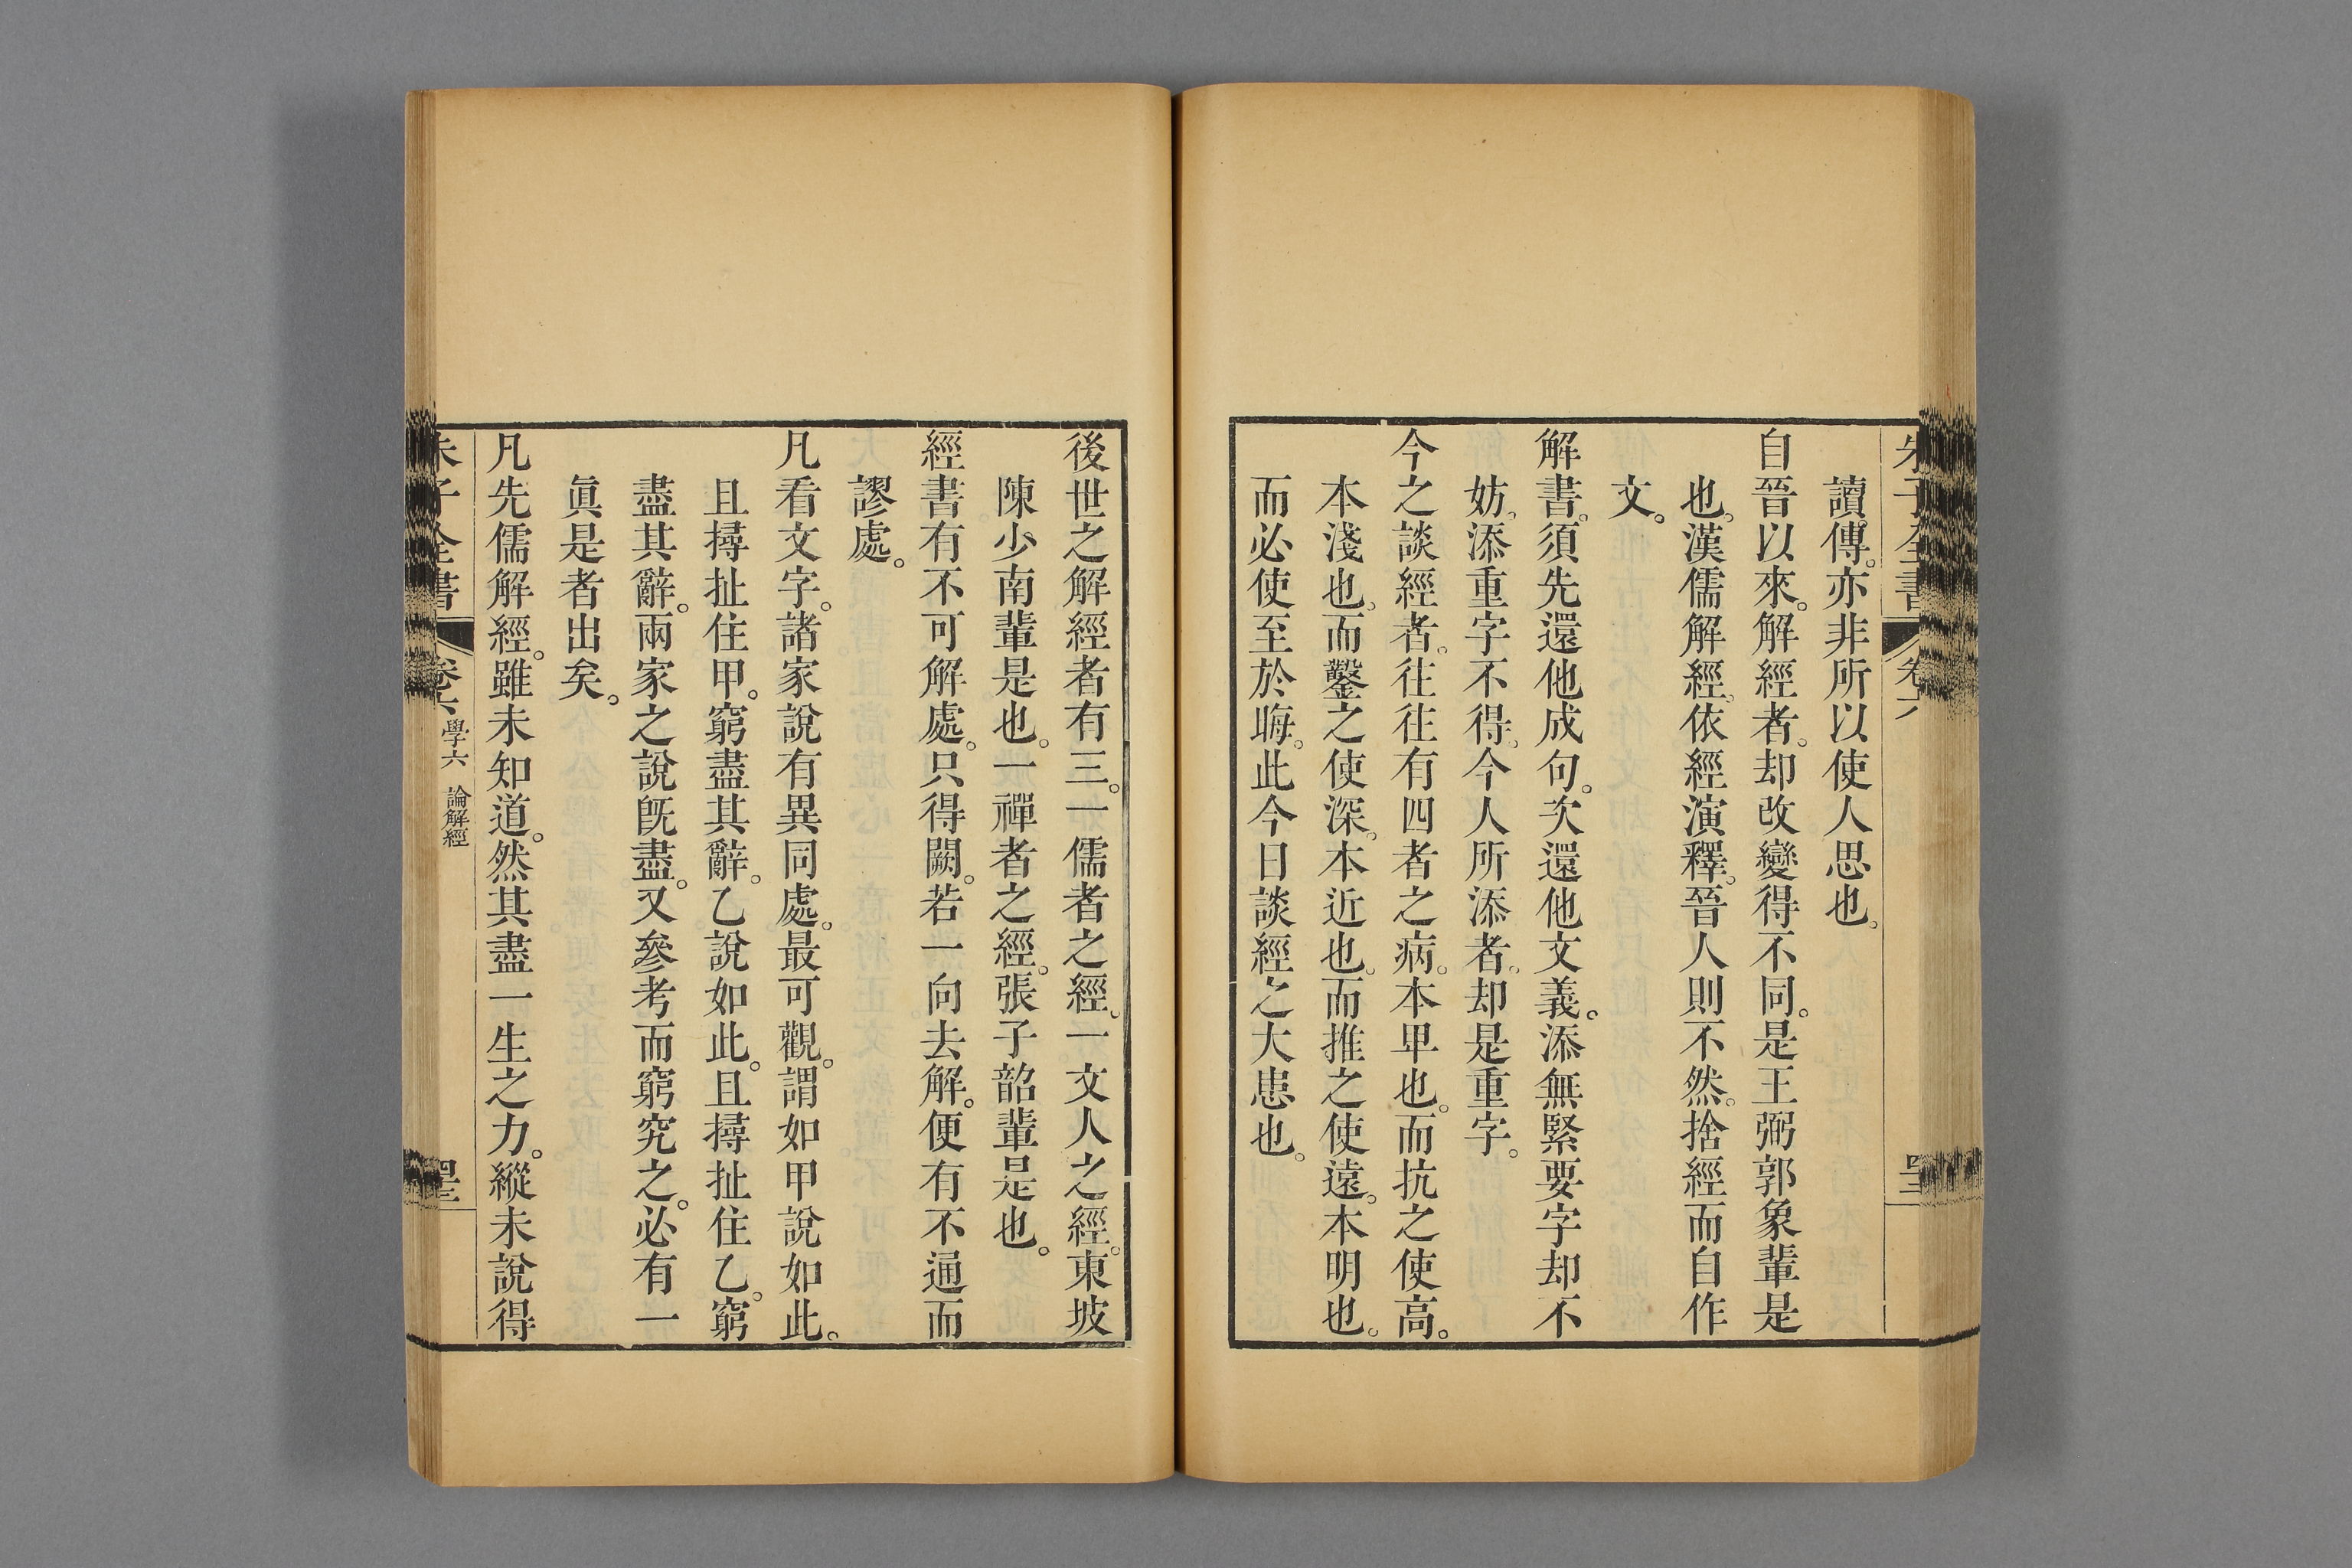 讀傳。亦非所以使人思也。
自晉以來。解經者。却改變得不同。是王弼郭象輩是
也。漢儒解經。依經演釋。晉人則不然。捨經而自作
文。
解書。須先還他成句。次還他文義。添無緊要字却不
妨。添重字不得。今人所添者。却是重字。
今之談經者。往往有四者之病。本卑也。而抗之使高。
本淺也。而鑿之使深。本近也。而推之使遠。本明也。
而必使至於晦。此今日談經之大患也。
後世之解經者有三。一儒者之經。一文人之經。東坡
陳少南輩是也。一禪者之經。張子韶輩是也。
經書有不可解處。只得闕。若一向去解。便有不通而
謬處。
凡看文字。諸家說有異同處。最可觀。謂如甲說如此。
且撏扯住甲。窮盡其辭。乙說如此。且撏扯住乙。窮
盡其辭。兩家之說旣盡。又參考而窮究之。必有一
眞是者出矣。
凡先儒解經。雖未知道。然其盡一生之力。縱未說得
朱子全書
卷六
學六 論解經